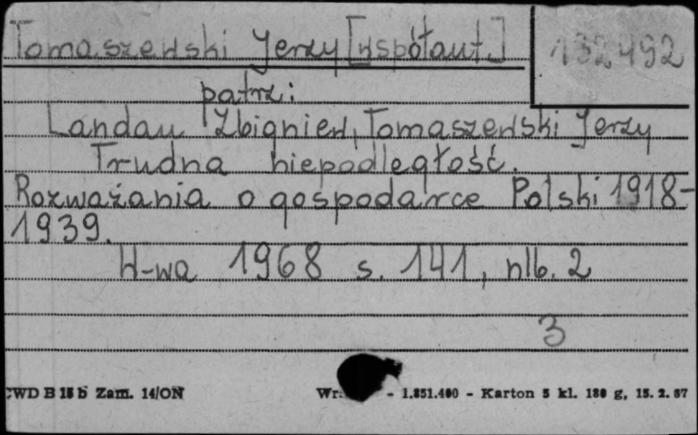 Tomaszewski Jerzy [współaut.]
132492
patrz:
Landau Zbigniew, Tomaszewski Jerzy
Trudna niepodległość.
Rozważania o gospodarce Polski 1918-
1939.
W-wa 1968 s. 141, nlb. 2
3
CWD B 15 b Zam. 14/ON
- 1.851.400 - Karton 5 kl. 180 g, 15. 2. 67